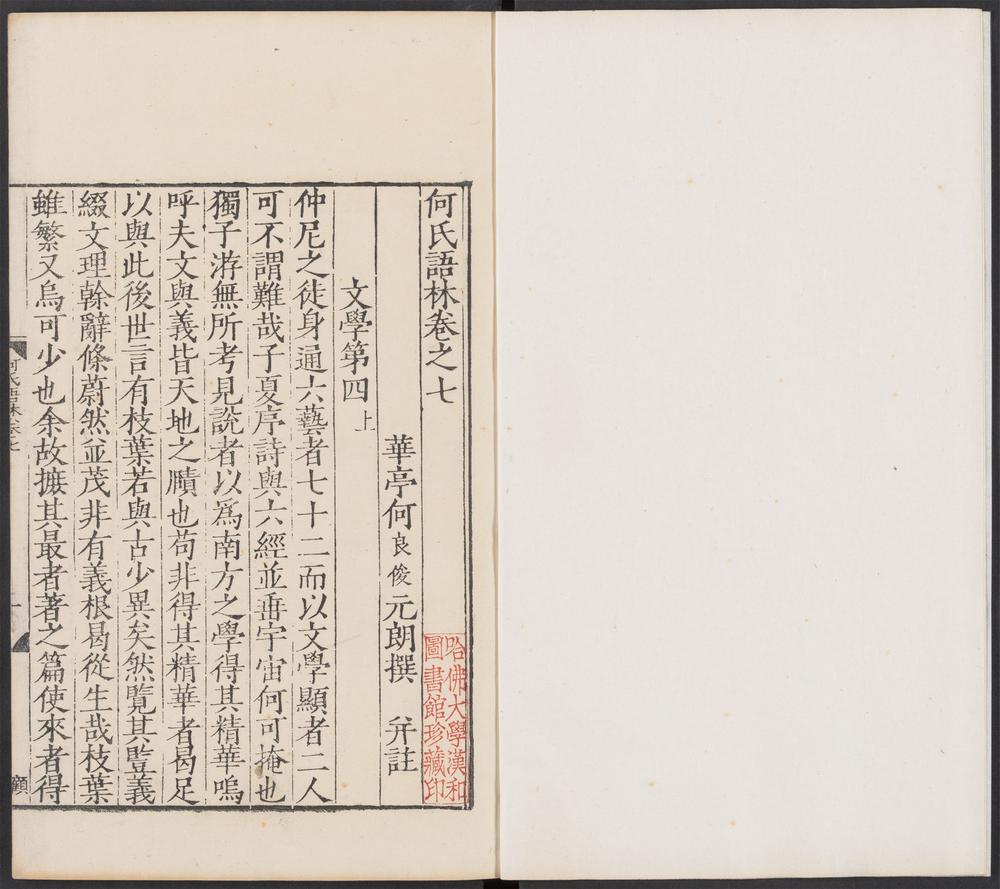 何氏語林卷之七
華亭何良俊元朗撰 幷註
文學第四上
仲尼之徒身通六藝者七十二而以文學顯者二人
可不謂難哉子夏序詩與六經並垂宇宙何可掩也
獨子游無所考見說者以爲南方之學得其精華嗚
呼夫文與義皆天地之賾也苟非得其精華者曷足
以與此後世言有枝葉若與古少異矣然覽其豎義
綴文理榦辭條蔚然並茂非有義根曷從生哉枝葉
雖繁又烏可少也余故摭其最者著之篇使來者得
哈佛大學漢和
圖書館珍藏印
何氏語林卷之七
一
顧